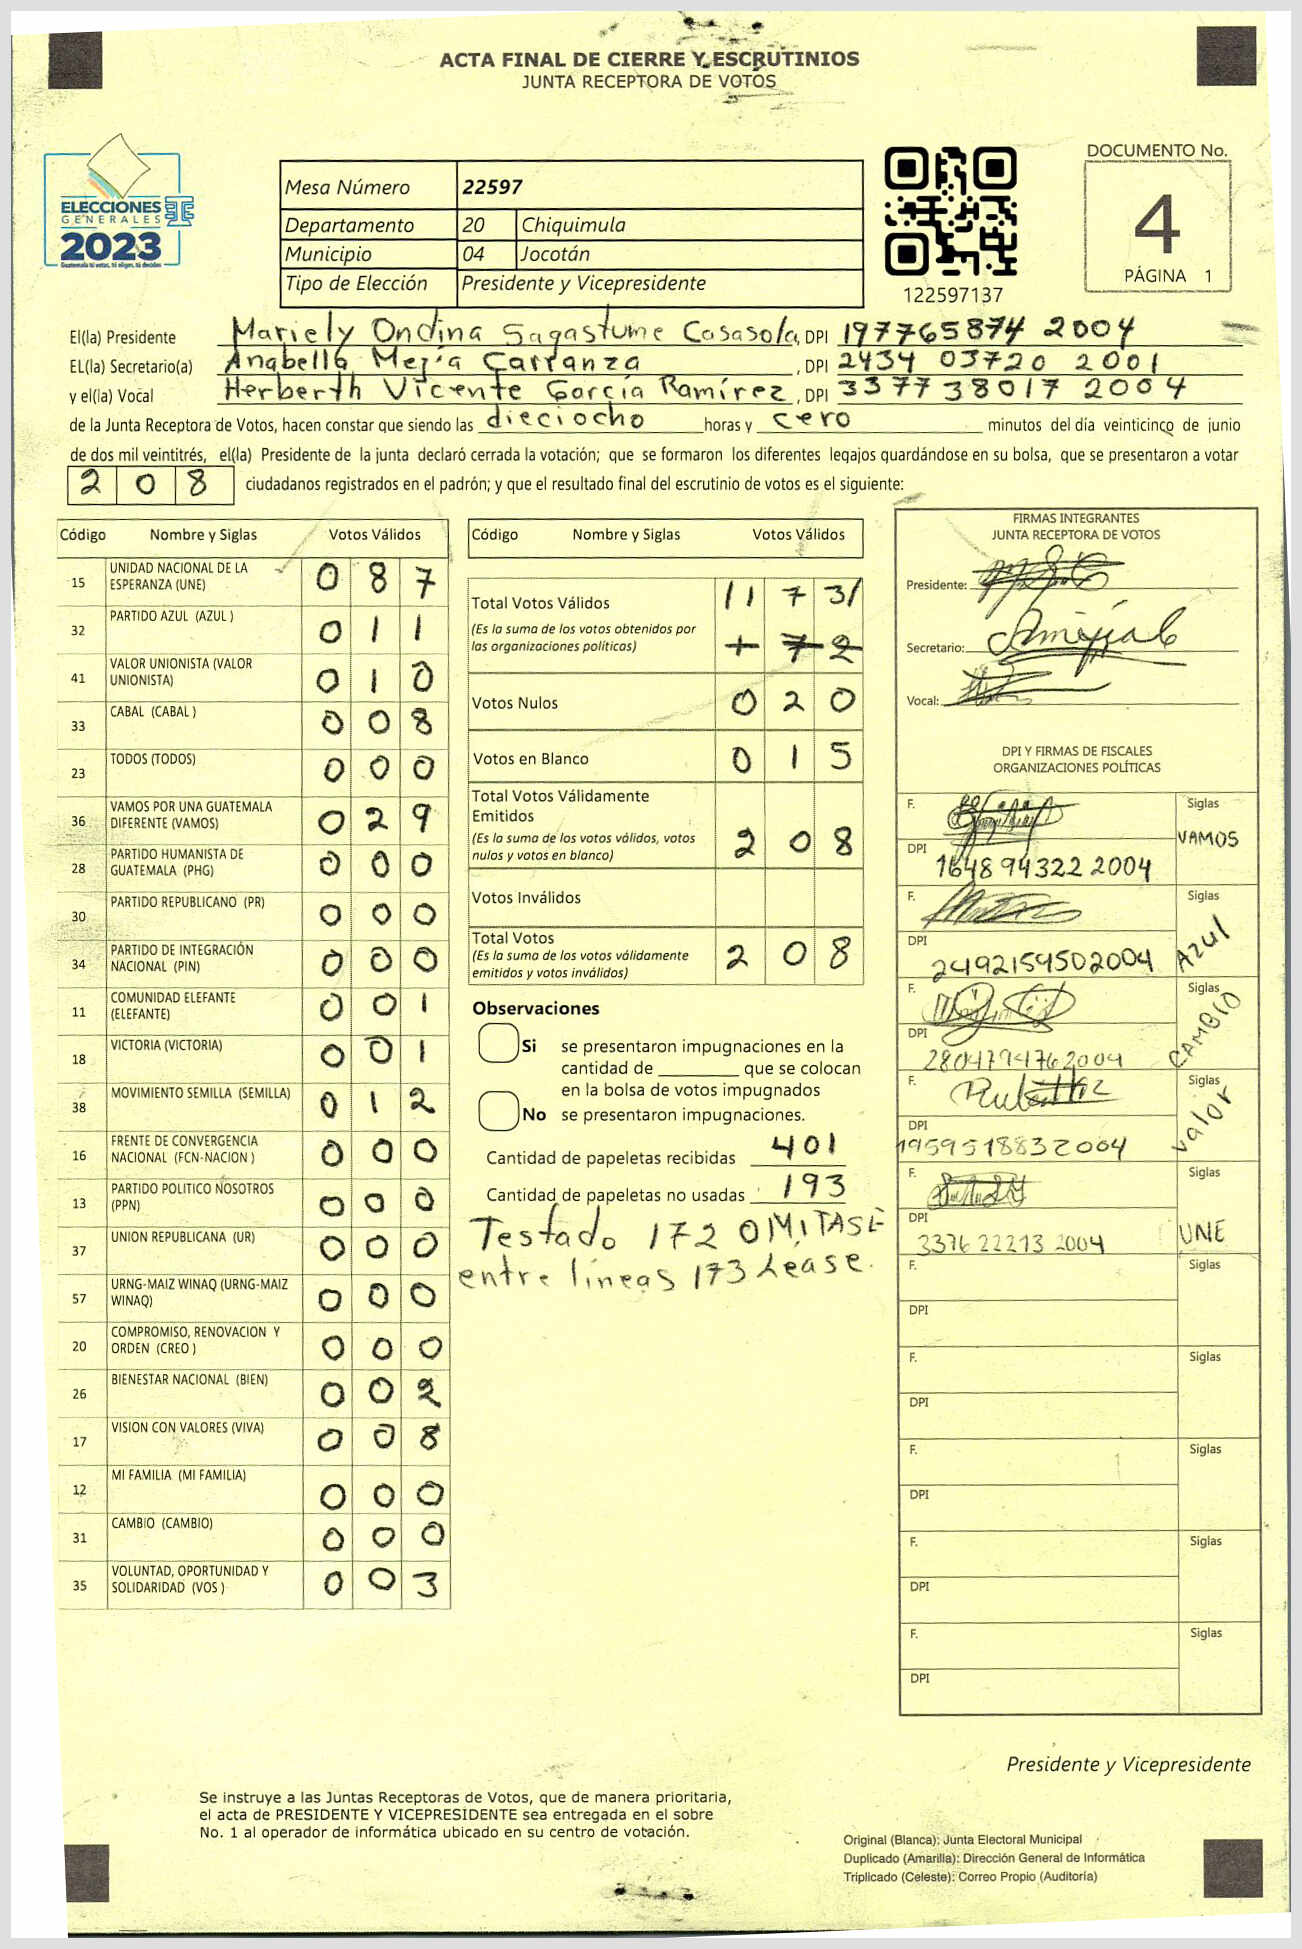 ACTA FINAL DE CIERRE Y ESCRUTINIOS
JUNTA RECEPTORA DE VOTOS
ELECCIONES
GENERALES
2023
Guatemala tú votas, tú eliges, tú decides
Mesa Número 22597
Departamento 20 Chiquimula
Municipio 04 Jocotán
Tipo de Elección Presidente y Vicepresidente
122597137
DOCUMENTO No.
4
PÁGINA 1
El(la) Presidente Mariely Ondina Sagastume Casasola, DPI 197765874 2004
EL(la) Secretario(a) Anabella Mejía Carranza, DPI 2434 03720 2001
y el(la) Vocal Herberth Vicente García Ramírez, DPI 3377 38017 2004
de la Junta Receptora de Votos, hacen constar que siendo las dieciocho horas y cero minutos del día veinticinco de junio
de dos mil veintitrés, el(la) Presidente de la junta declaró cerrada la votación; que se formaron los diferentes legajos guardándose en su bolsa, que se presentaron a votar
208 ciudadanos registrados en el padrón; y que el resultado final del escrutinio de votos es el siguiente:
Código Nombre y Siglas Votos Válidos
15 UNIDAD NACIONAL DE LA ESPERANZA (UNE) 0 8 7
32 PARTIDO AZUL (AZUL ) 0 1 1
41 VALOR UNIONISTA (VALOR UNIONISTA) 0 1 0
33 CABAL (CABAL ) 0 0 8
23 TODOS (TODOS) 0 0 0
36 VAMOS POR UNA GUATEMALA DIFERENTE (VAMOS) 0 2 9
28 PARTIDO HUMANISTA DE GUATEMALA (PHG) 0 0 0
30 PARTIDO REPUBLICANO (PR) 0 0 0
34 PARTIDO DE INTEGRACIÓN NACIONAL (PIN) 0 0 0
11 COMUNIDAD ELEFANTE (ELEFANTE) 0 0 1
18 VICTORIA (VICTORIA) 0 0 1
38 MOVIMIENTO SEMILLA (SEMILLA) 0 1 2
16 FRENTE DE CONVERGENCIA NACIONAL (FCN-NACION ) 0 0 0
13 PARTIDO POLITICO NOSOTROS (PPN) 0 0 0
37 UNION REPUBLICANA (UR) 0 0 0
57 URNG-MAIZ WINAQ (URNG-MAIZ WINAQ) 0 0 0
20 COMPROMISO, RENOVACION Y ORDEN (CREO ) 0 0 0
26 BIENESTAR NACIONAL (BIEN) 0 0 2
17 VISION CON VALORES (VIVA) 0 0 8
12 MI FAMILIA (MI FAMILIA) 0 0 0
31 CAMBIO (CAMBIO) 0 0 0
35 VOLUNTAD, OPORTUNIDAD Y SOLIDARIDAD (VOS ) 0 0 3
Código Nombre y Siglas Votos Válidos
Total Votos Válidos /1 7 3/
(Es la suma de los votos obtenidos por
las organizaciones políticas) 1 7 2
Votos Nulos 0 2 0
Votos en Blanco 0 1 5
Total Votos Válidamente
Emitidos
(Es la suma de los votos válidos, votos
nulos y votos en blanco) 2 0 8
Votos Inválidos
Total Votos
(Es la suma de los votos válidamente
emitidos y votos inválidos) 2 0 8
Observaciones
Si se presentaron impugnaciones en la
cantidad de ________ que se colocan
en la bolsa de votos impugnados
No se presentaron impugnaciones.
Cantidad de papeletas recibidas 401
Cantidad de papeletas no usadas 193
Testado 172 OMITASE
entre líneas 173 Léase.
FIRMAS INTEGRANTES
JUNTA RECEPTORA DE VOTOS
Presidente:
Secretario:
Vocal:
DPI Y FIRMAS DE FISCALES
ORGANIZACIONES POLÍTICAS
F. Siglas
VAMOS
DPI
1648 94322 2004
F. Siglas
Azul
DPI
2492159502004
F. Siglas
CAMBIO
DPI
2804794762004
F. Siglas
valor
DPI
1959518832004
F. Siglas
UNE
DPI
3376 22213 2004
F. Siglas
DPI
F. Siglas
DPI
F. Siglas
DPI
F. Siglas
DPI
F. Siglas
DPI
Presidente y Vicepresidente
Se instruye a las Juntas Receptoras de Votos, que de manera prioritaria,
el acta de PRESIDENTE Y VICEPRESIDENTE sea entregada en el sobre
No. 1 al operador de informática ubicado en su centro de votación.
Original (Blanca): Junta Electoral Municipal
Duplicado (Amarilla): Dirección General de Informática
Triplicado (Celeste): Correo Propio (Auditoría)